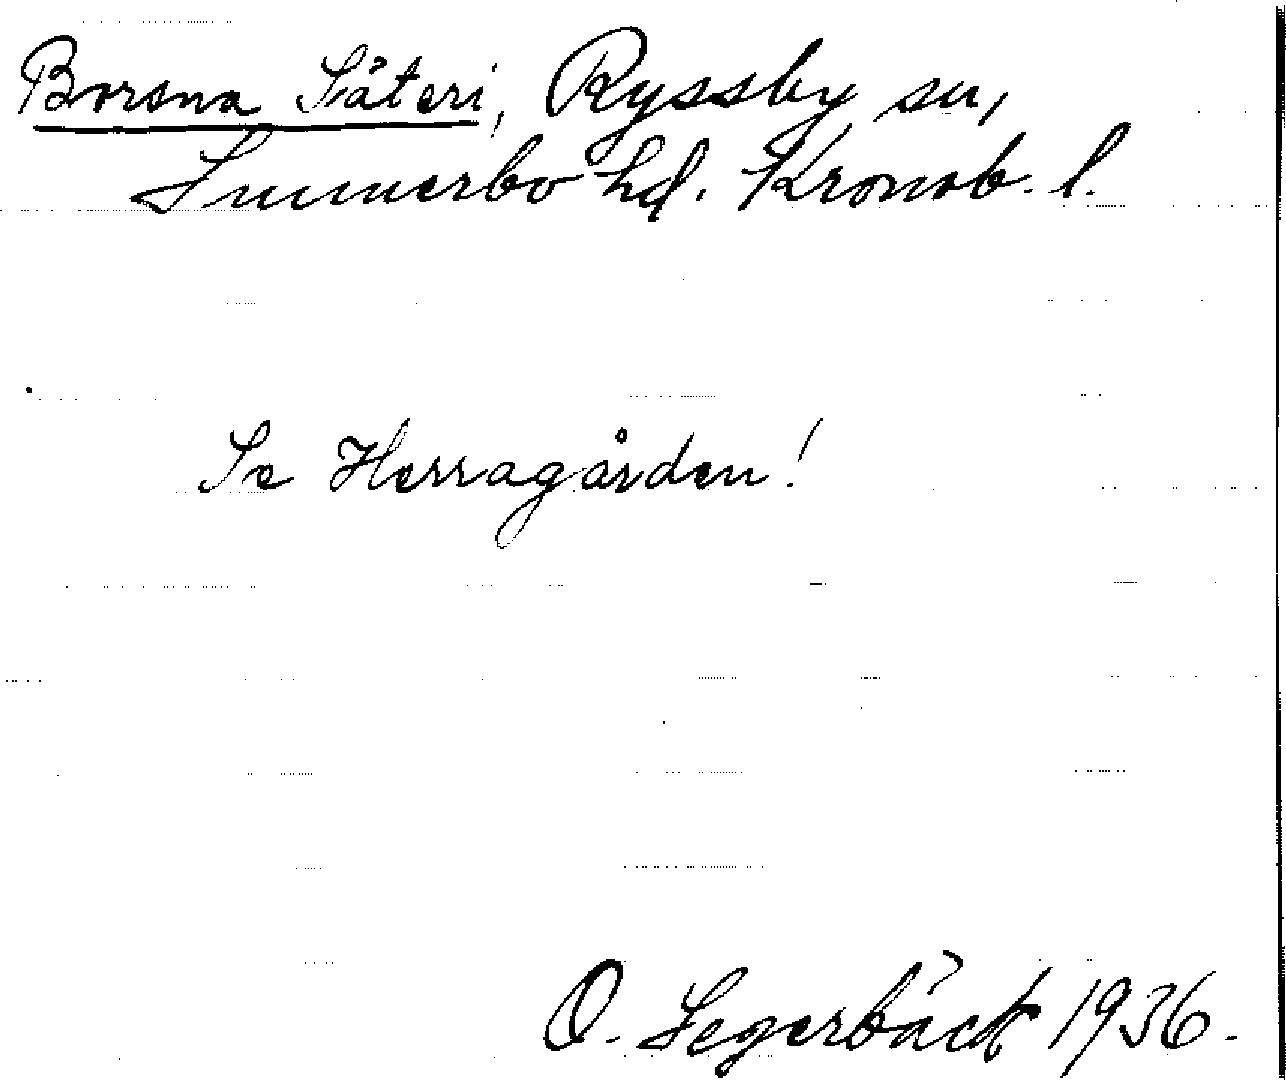 Borsna Säteri, Ryssby sn,
Sunnerbo hd. Kronob. l.
Se Herragården!
O. Segerbäck 1936.